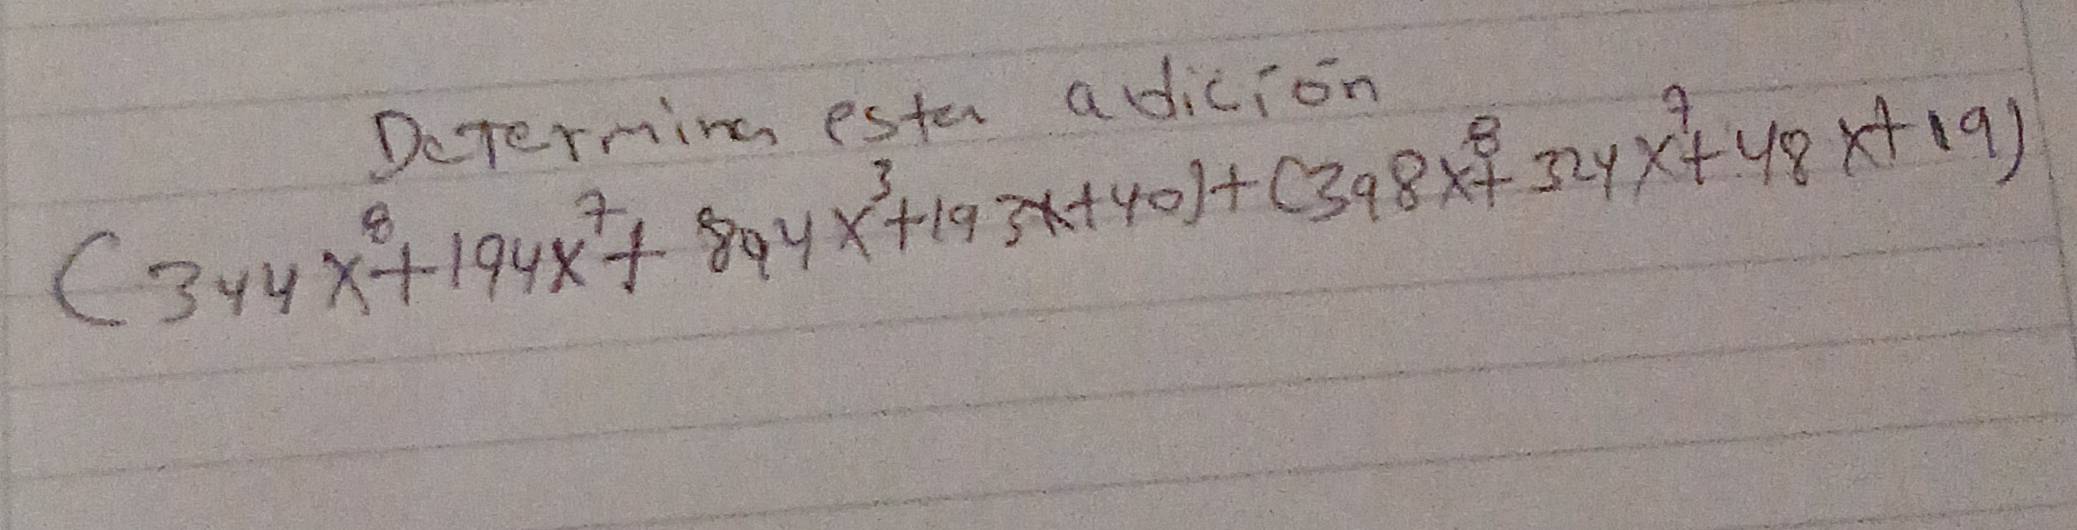 Determina esta adición
(344x⁸+194x⁷+894x³+193x+40)+(398x⁸+324x⁷+48x+19)